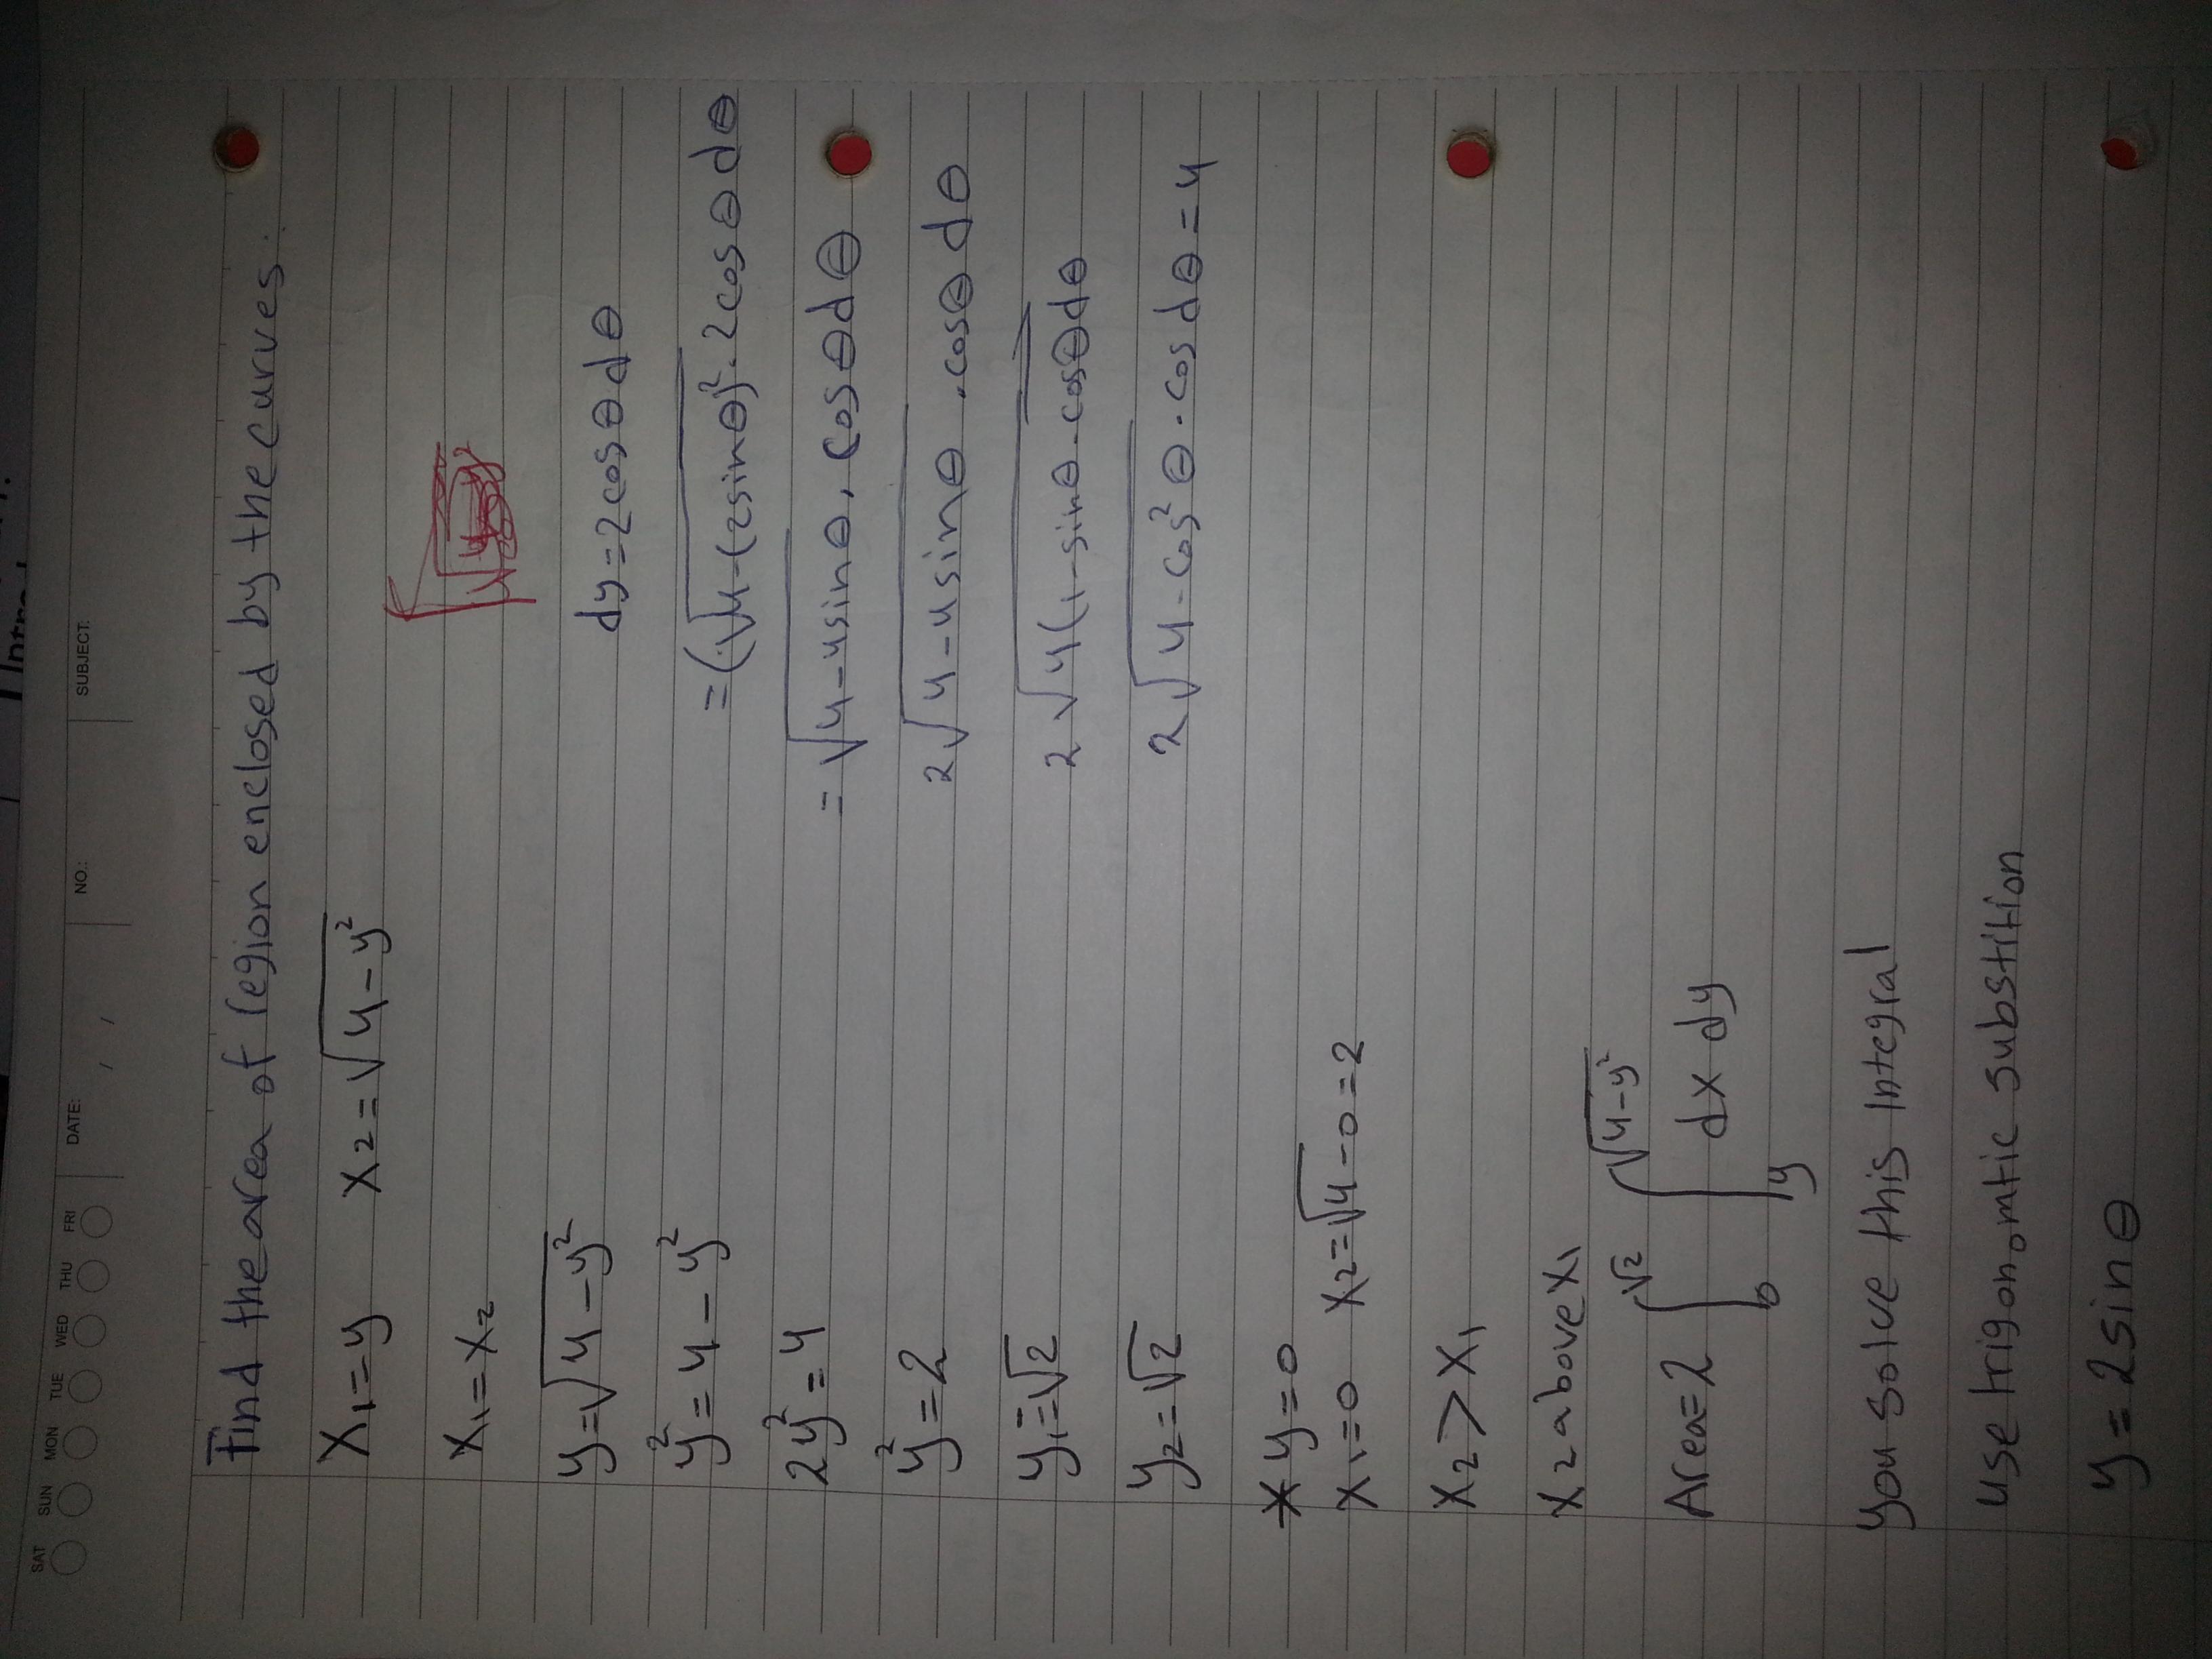 SAT SUN MON TUE WED THU FRI
DATE: / /
NO.:
SUBJECT:
Find the area of region enclosed by the curves.
x₁=y x₂=√4-y²
x₁=x₂
y=√4-y²
y²=4-y²
2y²=4
y²=2
y₁=√2
y₂=√2
* y=0
x₁=0 x₂=√4-0=2
x₂>x₁
x₂ above x₁
Area=2 ∫₀^√2 ∫_y^√4-y² dx dy
you solve this integral
use trigonomtic substition
y=2sinθ
dy=2cosθdθ
=(√4-(2sinθ)²·2cosθdθ
=√4-4sinθ, cosθdθ
2√4-4sinθ .cosθdθ
2√4(1-sinθ.cosθdθ
2√4-cos²θ.cosdθ=4